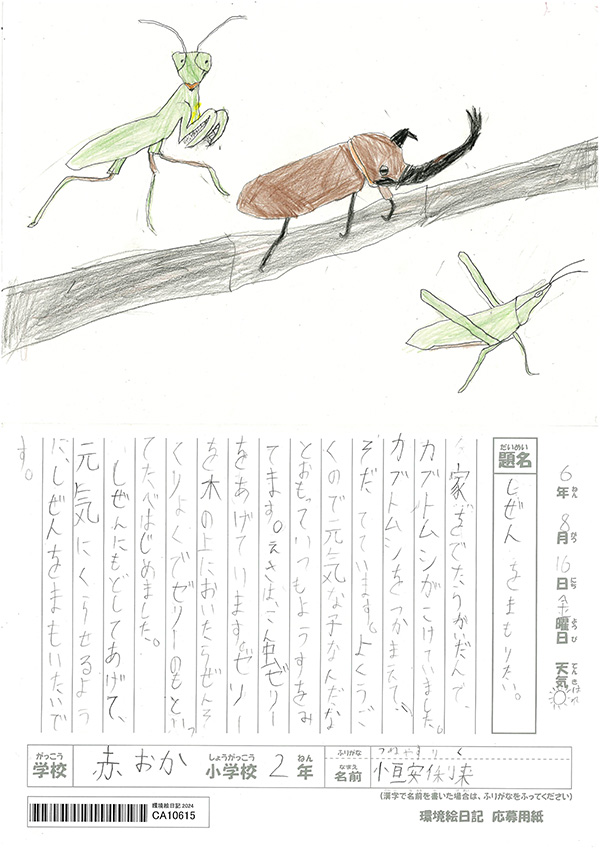 6年 8月 16日 金曜日 天気 はれ
ねん がつ にち ようび てんき
だいめい
題名
しぜんをまもりたい。
カブトムシがこけていました。
カブトムシをつかまえて、
そだてています。よくうご
くので元気な子なんだな
とおもっていつもようすをみ
てます。えさは、こん虫ゼリー
をあげています。ゼリー
を木の上においたらぜんそ
くりょくでゼリーのもとへいっ
てたべはじめました。
しぜんにもどしてあげて、
元気にくらせるよう
に、しぜんをまもいたいで
す。
がっこう しょうがっこう ねん ふりがな
学校 赤おか 小学校 2年 なまえ 名前
(漢字で名前を書いた場合は、ふりがなをふってください)
環境絵日記2024
CA10615
環境絵日記 応募用紙